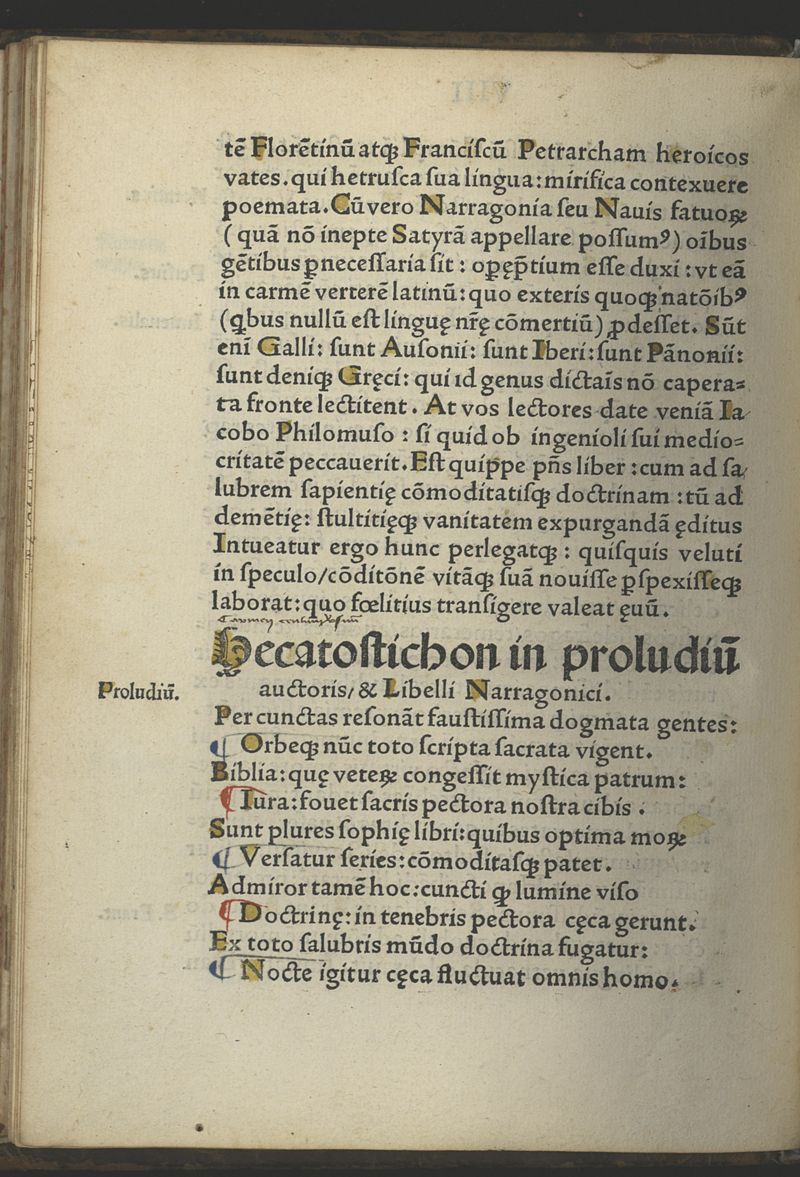 tē Florētinū atqꝫ Franciſcū Petrarcham heroicos
vates.qui hetruſca ſua lingua:mirifica contexuere
poemata.Cū vero Narragonia ſeu Nauis fatuoꝝ
(quā nō inepte Satyrā appellare poſſumꝰ) oībus
gētibus ꝑneceſſaria ſit: oꝑęp̄tium eſſe duxi:vt eā
in carmē verterē latinū:quo exteris quoqꝫ natōibꝰ
(qbus nullū eſt linguę nr̄ę cōmertiū) ꝓdeſſet. Sūt
enī Galli: ſunt Auſonii: ſunt Iberi:ſunt Pānonii:
ſunt deniqꝫ Gręci: qui id genus dictaīs nō capera⸗
ta fronte lectitent. At vos lectores date veniā Ia
cobo Philomuſo : ſi quid ob ingenioli ſui medio⸗
critatē peccauerit.Eſt quippe pn̄s liber:cum ad ſa
lubrem ſapientię cōmoditatiſqꝫ doctrinam:tū ad
demētię: ſtultitięqꝫ vanitatem expurgandā ęditus
Intueatur ergo hunc perlegatqꝫ: quiſquis veluti
in ſpeculo/cōditōnē vitāqꝫ ſuā nouiſſe ꝑſpexiſſeqꝫ
laborat:quo fœlitius tranſigere valeat ęuū.
Hecatoſtichon in proludiū
Proludiū.
auctoris/ & Libelli Narragonici.
Per cunctas reſonāt fauſtiſſima dogmata gentes:
¶ Orbeqꝫ nūc toto ſcripta ſacrata vigent.
Biblia:quę veteꝝ congeſſit myſtica patrum:
¶ Iura:fouet ſacris pectora noſtra cibis.
Sunt plures ſophię libri:quibus optima moꝝ
¶ Verſatur ſeries:cōmoditaſqꝫ patet.
Admiror tamē hoc:cuncti qꝫ lumine viſo
¶ Doctrinę:in tenebris pectora cęca gerunt.
Ex toto ſalubris mūdo doctrina fugatur:
¶ Nocte igitur cęca fluctuat omnis homo.